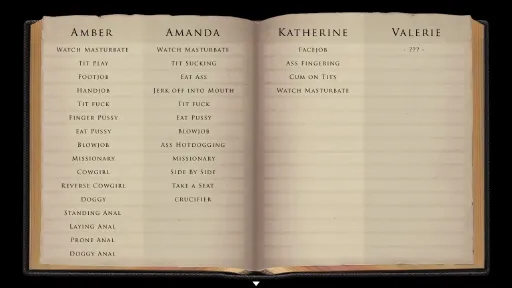 Amber
Watch Masturbate
Tit Play
Footjob
Handjob
Tit fuck
Finger Pussy
Eat Pussy
Blowjob
Missionary
Cowgirl
Reverse Cowgirl
Doggy
Standing Anal
Laying Anal
Pront Anal
Doggy Anal
Amanda
Watch Masturbate
Tit Sucking
Eat Ass
Jerk off into Mouth
Tit fuck
Eat Pussy
Blowjob
Ass Hotdogging
Missionary
Side By Side
Take a Seat
crucifier
Katherine
Facejob
Ass Fingering
Cum on Tits
Watch Masturbate
Valerie
- ??? -